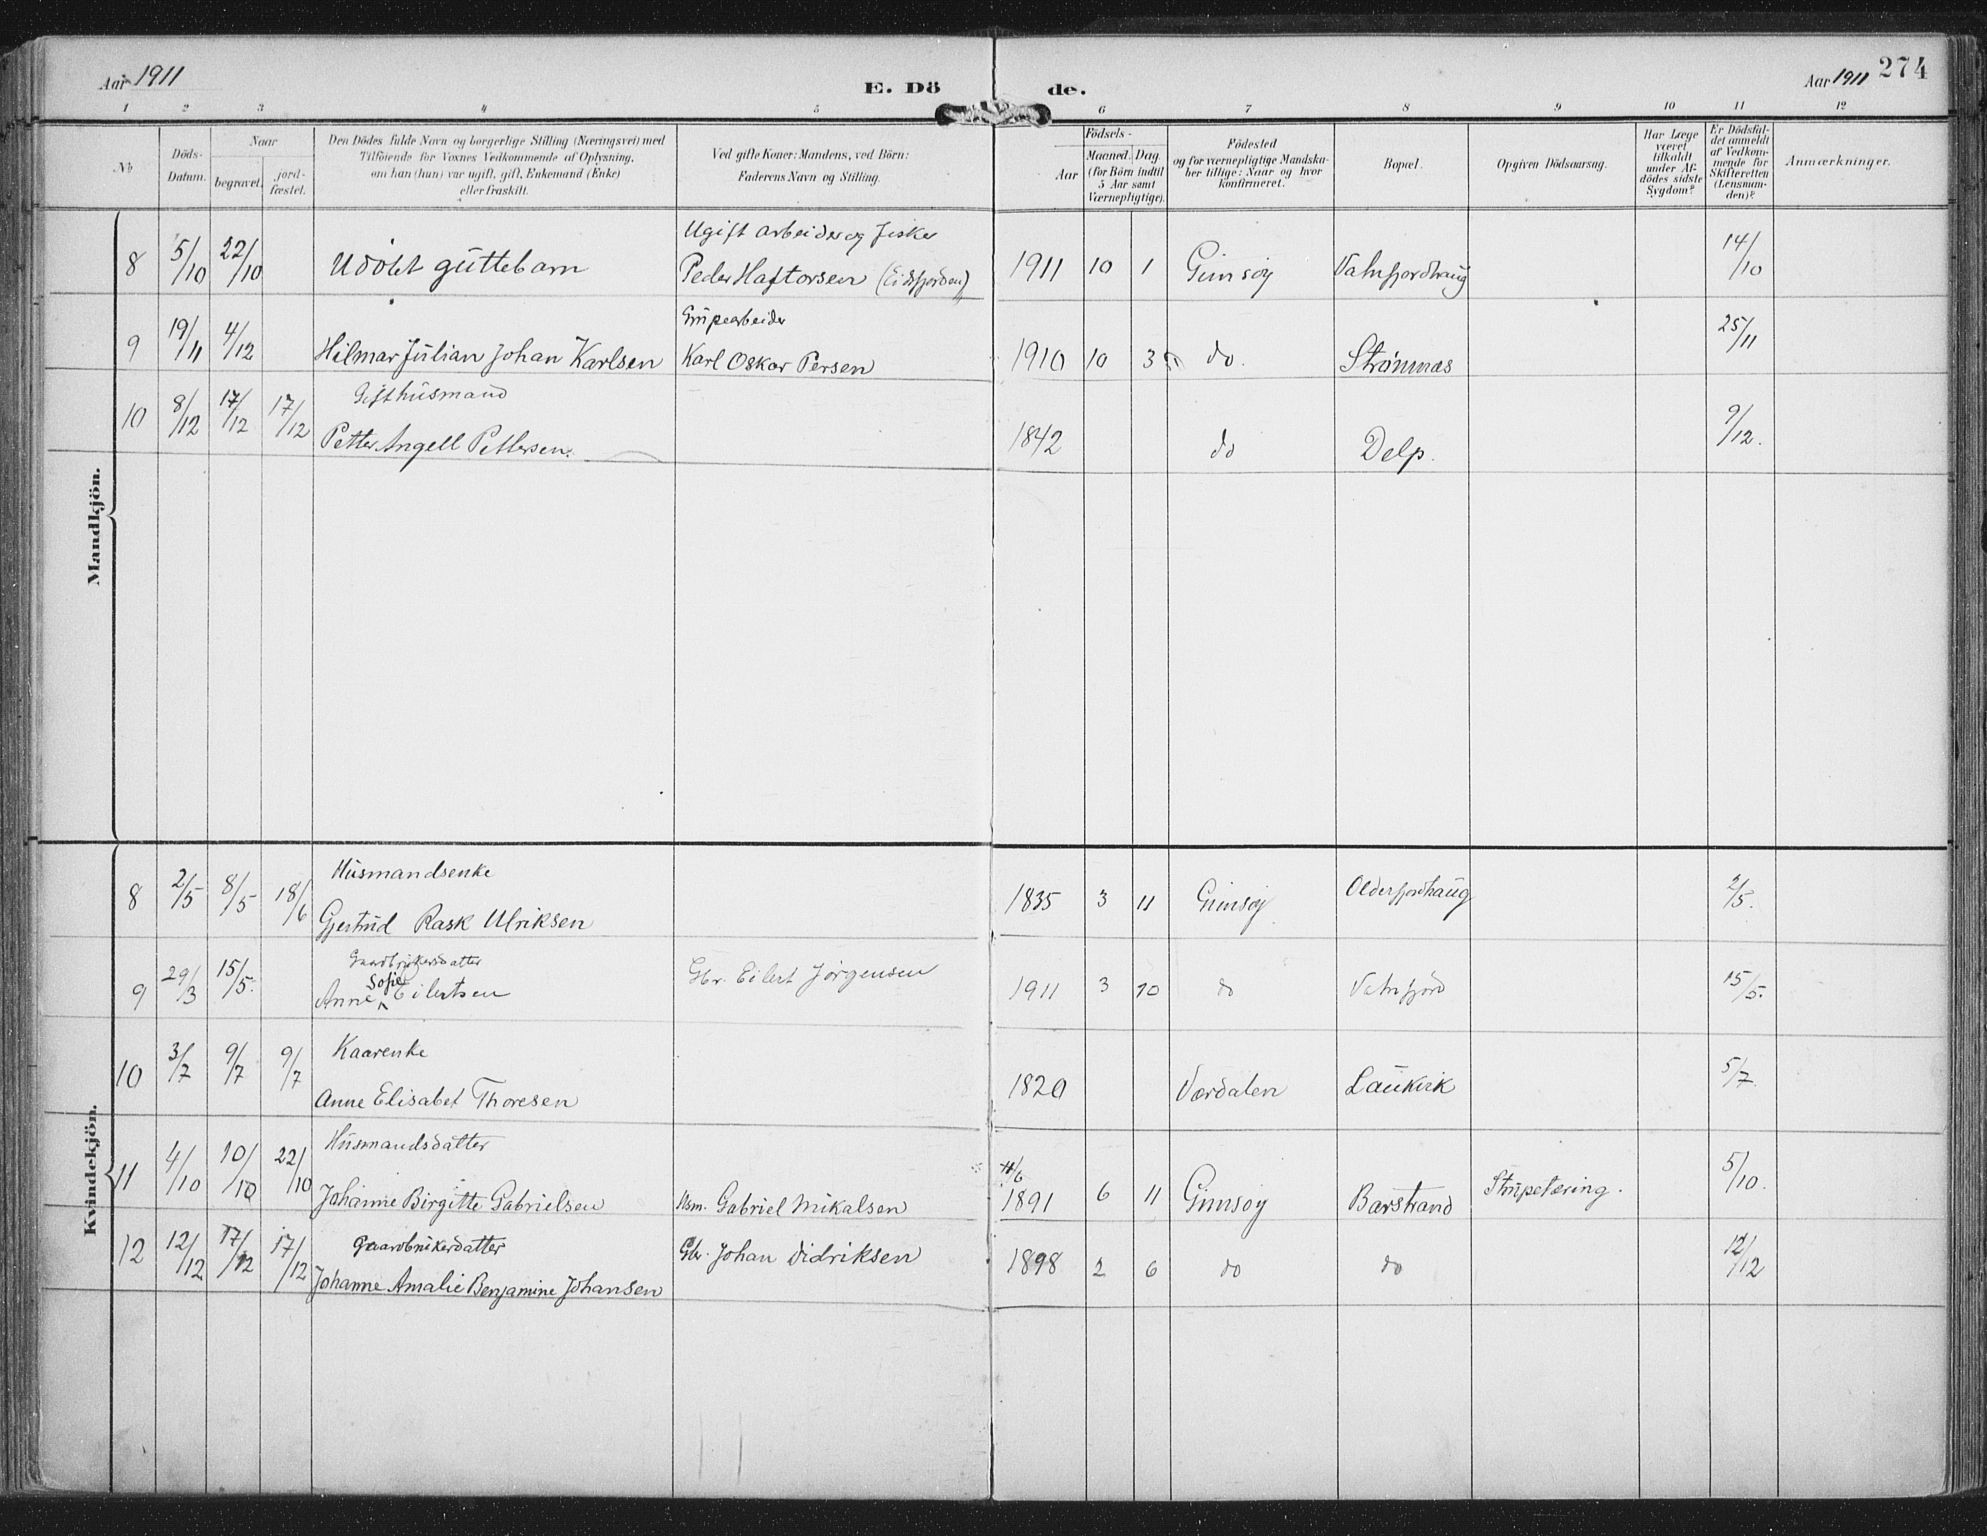 Aar 1911
E. Döde.
Aar 1911 274
1 2 3 4 5 6 7 8 9 10 11 12
No
Döds-Datum.
Naar
begravet.
jord-fæstet.
Den Dödes fulde Navn og borgerlige Stilling (Næringsvei) med
Tilföiende for Voxnes Vedkommende af Oplysning,
om han (hun) var ugift, gift, Enkemand (Enke)
eller fraskilt.
Ved gifte Koner: Mandens, ved Börn:
Faderens Navn og Stilling.
Födsels-
Aar
Maaned. Dag.
(for Börn indtil
5 Aar samt
Værnepligtige).
Födested
og for værnepligtige Mandska-
ber tillige: Naar og hvor
konfirmeret.
Bopæl.
Opgiven Dödsaarsag.
Har Læge
været
tilkaldt
under Af-
dödes sidste
Sygdom?
Er Dödsfal-
det anmeldt
af Vedkom-
mende for
Skifteretten
(Lensman-
den)?
Anmærkninger.
Mandkjön.
Ugift arbeider og fisker
8 5/10 22/10 Udöbt guttebarn Peder Haftorsen (Eidsfjorden) 1911 10 1 Gimsøy Vatnfjordhaug 14/10
Grupearbeider
9 19/11 4/12 Hilmar Julian Johan Karlsen Karl Oskar Persen 1910 10 3 do. Strømnes 25/11
Gift husmand
10 8/12 17/12 17/12 Petter Angell Pettersen. 1842 do Delp. 9/12.
Kvindekjön.
Husmandsenke
8 2/5 8/5 18/6 Gjertrud Rask Ulriksen 1835 3 11 Gimsøy Olderfjordhaug 2/5.
Gaardbrukersdatter
Sofie
9 29/3 15/5. Anne Eilertsen Gbr. Eilert Jørgensen 1911 3 10 do Vatnfjord 15/5.
Kaarenke
10 3/7 9/7 9/7 Anne Elisabet Thoresen 1820 Værdalen Laukvik 5/7.
Husmandsdatter
11/6
11 4/10 10/10 22/10 Johanne Birgitte Gabrielsen Hsm. Gabriel Mikalsen 1891 6 11 Gimsøy Barstrand Strupetæring. 5/10.
Gaardbrukerdatter
12 12/12 17/12 17/12 Johanne Amalie Benjamine Johansen Gbr. Johan Didriksen 1898 2 6 do do 12/12